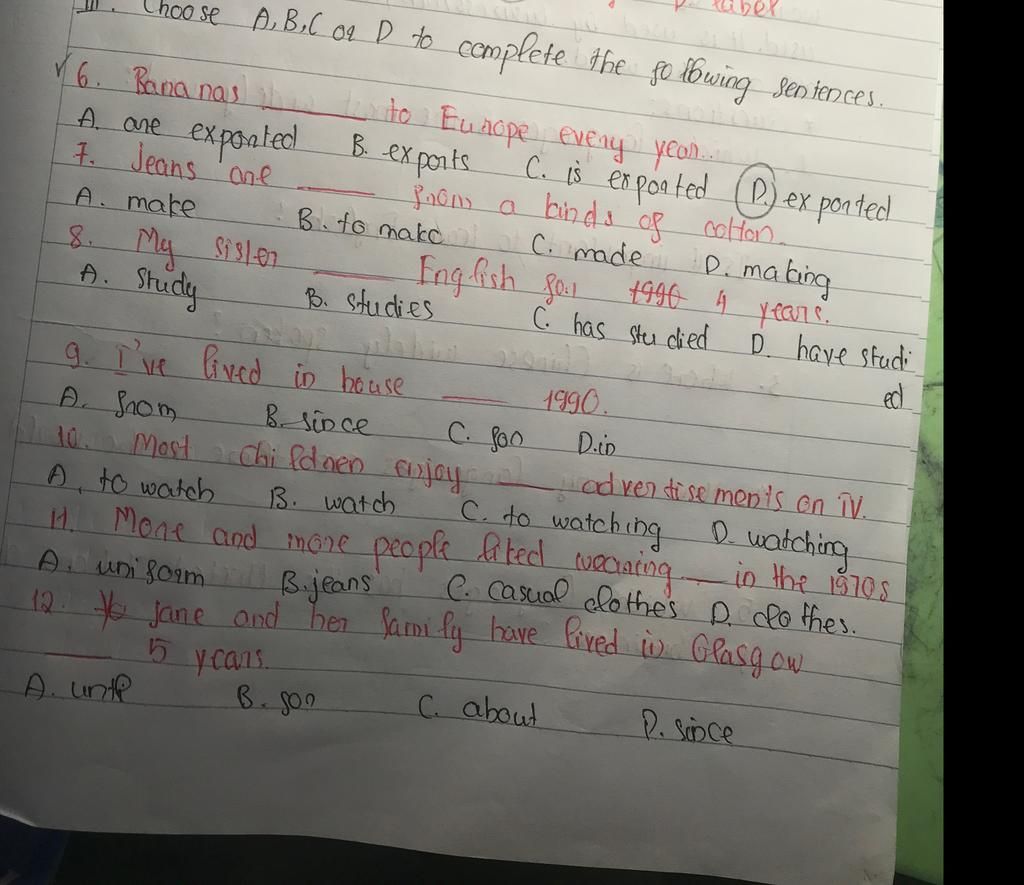 III. Choose A, B, C or D to complete the following sentences.
6. Bananas ____ to Europe every year.
A. are exported B. exports C. is exported D. exported
7. Jeans are ____ from a kinds of cotton.
A. make B. to make C. made D. making
8. My sister ____ English for 1990 4 years.
A. study B. studies C. has studied D. have studi
ed
9. I've lived in house ____ 1990.
A. from B. since C. for D. in
10. Most children enjoy ____ advertisements on TV.
A. to watch B. watch C. to watching D. watching
11. More and more people liked wearing ____ in the 1970s
A. uniform B. jeans C. casual clothes D. clothes.
12. Jane and her family have lived in Glasgow
____ 5 years.
A. until B. for C. about D. since